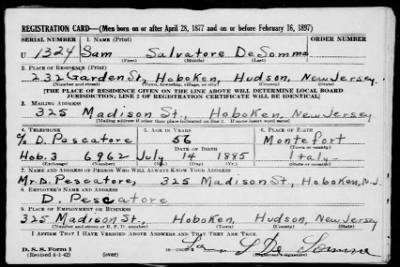 REGISTRATION CARD—(Men born on or after April 28, 1877 and on or before February 16, 1897)
SERIAL NUMBER 1. NAME (Print) ORDER NUMBER
U 1324 Sam Salvatore DeSomma
(First) (Middle) (Last)
2. PLACE OF RESIDENCE (Print)
232 Garden St., Hoboken, Hudson, New Jersey.
(Number and street) (Town, township, village, or city) (County) (State)
[THE PLACE OF RESIDENCE GIVEN ON THE LINE ABOVE WILL DETERMINE LOCAL BOARD
JURISDICTION; LINE 2 OF REGISTRATION CERTIFICATE WILL BE IDENTICAL]
3. MAILING ADDRESS
325 Madison St., Hoboken, New Jersey
(Mailing address if other than place indicated on line 2. If same insert word same)
4. TELEPHONE 5. AGE IN YEARS 6. PLACE OF BIRTH
c/o D. Pescatore 56 Montefort
DATE OF BIRTH
Hob. 3 6962 July 14 1885 Italy
(Exchange) (Number) (Mo.) (Day) (Yr.) (State or country)
7. NAME AND ADDRESS OF PERSON WHO WILL ALWAYS KNOW YOUR ADDRESS
Mr. D. Pescatore, 325 Madison St., Hoboken, N.J.
8. EMPLOYER'S NAME AND ADDRESS
D. Pescatore
9. PLACE OF EMPLOYMENT OR BUSINESS
325 Madison St., Hoboken, Hudson, New Jersey
(Number and street or R. F. D. number) (Town) (County) (State)
I AFFIRM THAT I HAVE VERIFIED ABOVE ANSWERS AND THAT THEY ARE TRUE.
D. S. S. Form 1
(Revised 4-1-42) (over)